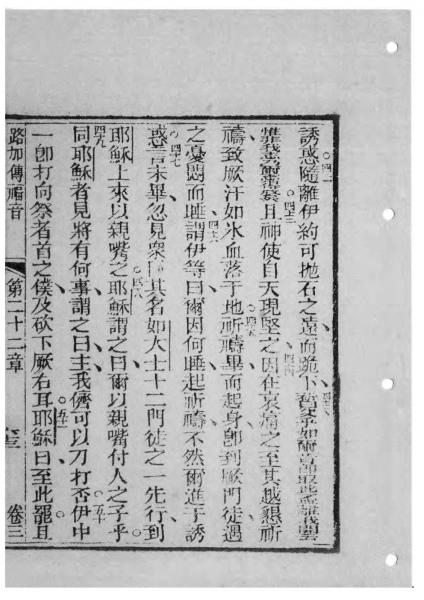 誘惑隨離伊約可抛石之遠而跪下
四一
四二
離我
四三
且神使自天現堅之因在哀痛之至其越懇祈
四四
禱致厥汗如氷血落于地祈禱畢而起身卽到厥門徒遇
四五
之憂悶而睡謂伊等曰爾因何睡起祈禱不然爾進于誘
四六
惑言未畢忽見衆 其名如大士十二門徒之一先行到
四七
耶穌上來以親嘴之耶穌謂之曰爾以親嘴付人之子乎
四八
同耶穌者見將有何事謂之曰主我儕可以刀打否伊中
四九
一卽打向祭者首之僕及砍下厥右耳耶穌曰至此罷且
五十
五一
路加傳福音 第二十二章 卷三